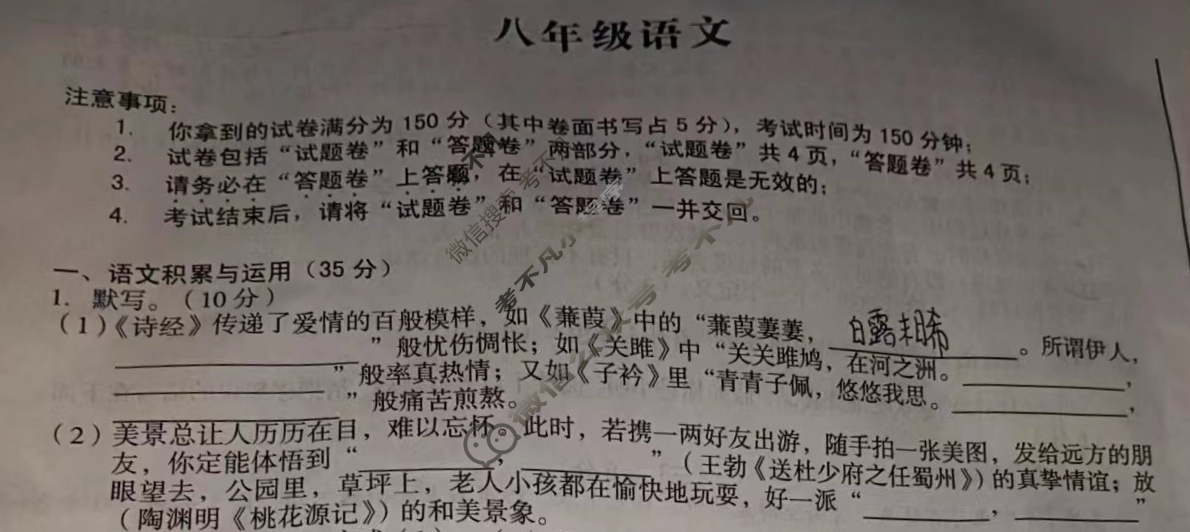 八年级语文
注意事项：
1. 你拿到的试卷满分为 150 分（其中卷面书写占 5 分），考试时间为 150 分钟；
2. 试卷包括“试题卷”和“答题卷”两部分，“试题卷”共 4 页，“答题卷”共 4 页；
3. 请务必在“答题卷”上答题，在“试题卷”上答题是无效的；
4. 考试结束后，请将“试题卷”和“答题卷”一并交回。
一、语文积累与运用（35 分）
1. 默写。（10 分）
（1）《诗经》传递了爱情的百般模样，如《蒹葭》中的“蒹葭萋萋，白露未晞。所谓伊人，
________”般忧伤惆怅；如《关雎》中“关关雎鸠，在河之洲。________，
________”般率真热情；又如《子衿》里“青青子佩，悠悠我思。________，
________”般痛苦煎熬。
（2）美景总让人历历在目，难以忘怀。此时，若携一两好友出游，随手拍一张美图，发给远方的朋
友，你定能体悟到“________，________”（王勃《送杜少府之任蜀州》）的真挚情谊；放
眼望去，公园里，草坪上，老人小孩都在愉快地玩耍，好一派“________，________”
（陶渊明《桃花源记》）的和美景象。